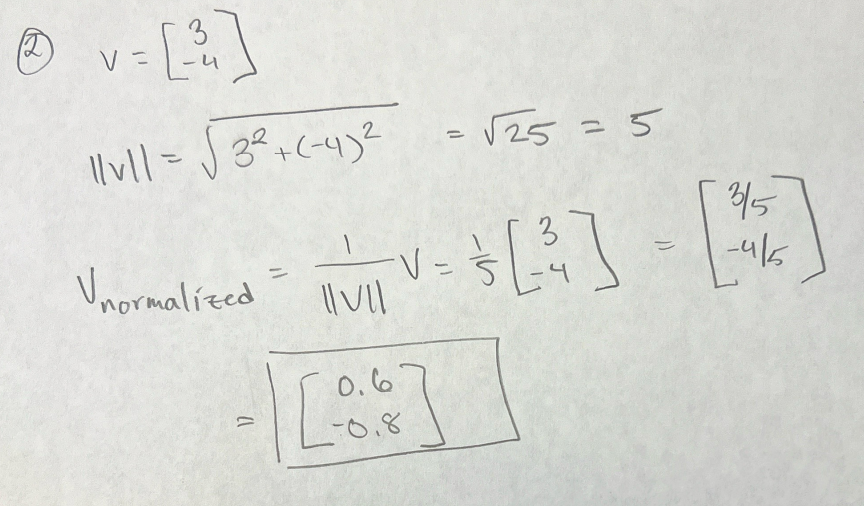 ② v = [3
-4]
||v|| = √(3² + (-4)²) = √25 = 5
Vnormalized = 1/||V|| V = 1/5 [3
-4] = [3/5
-4/5]
= [0.6
-0.8]